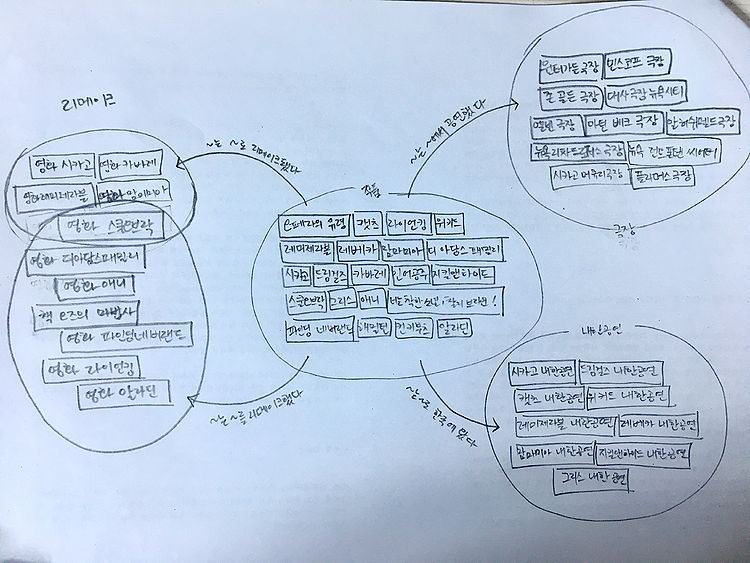 리메이크
영화 시카고 영화 카바레
영화레미제라블 영화 맘마미아
영화 스쿨오브락
영화 디아담스패밀리
영화 애니
책 오즈의 마법사
영화 파인딩네버랜드
영화 라이언킹
영화 알라딘
~는 ~로 리메이크됐다
~는 ~를 리메이크했다
작품
오페라의 유령 캣츠 라이언킹 위키드
레미제라블 레베카 맘마미아 디 아담스 패밀리
시카고 드림걸즈 카바레 인어공주 지킬앤하이드
스쿨오브락 그리스 애니 넌 착한 소년, 찰리 브라운!
파인딩 네버랜드 해밀턴 킨키부츠 알라딘
~는 ~에서 공연했다
윈터가든극장 민스코프 극장
존 골든 극장 대사극장 뉴욕시티
마틴 베크 극장 알 허쉬펠드극장
뉴욕 런트 폰탠 씨어터
시카고 머큐리극장 플리머스극장
극장
~는 ~로 한국에 왔다
내한공연
시카고 내한공연 드림걸즈 내한공연
캣츠 내한공연 위키드 내한공연
레미제라블 내한공연 레베카 내한공연
맘마미아 내한공연 지킬앤하이드 내한공연
그리스 내한공연